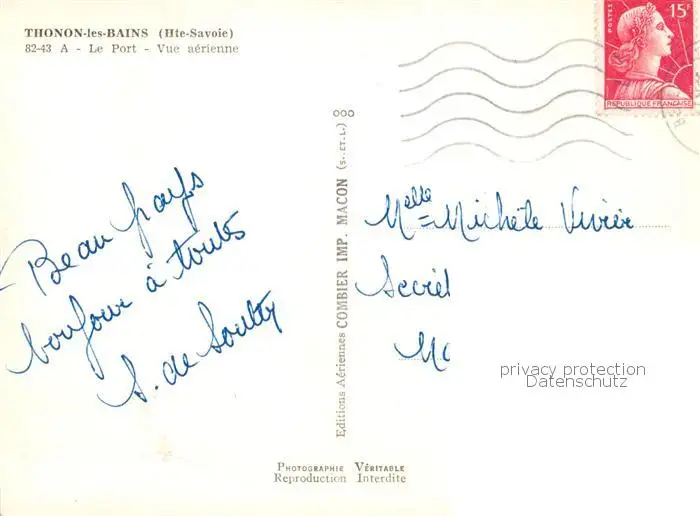 THONON-les-BAINS (Hte-Savoie)
82-43 A - Le Port - Vue aérienne
POSTES
15F
REPUBLIQUE FRANÇAISE
Beau pays
bonjour à toutes
S. de
Editions Aériennes COMBIER IMP. MACON (S.-ET-L.)
Melle Michèle Vivier
privacy protection
Datenschutz
PHOTOGRAPHIE VÉRITABLE
Reproduction Interdite